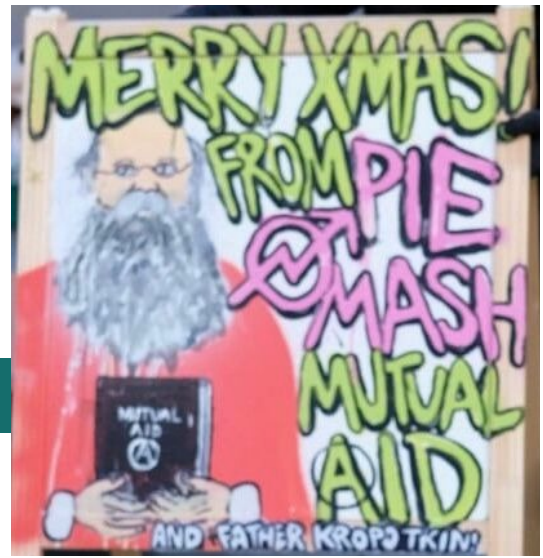 MERRY XMAS!
FROM PIE
MASH
MUTUAL
AID
MUTUAL
AID
AND FATHER KROPOTKIN!